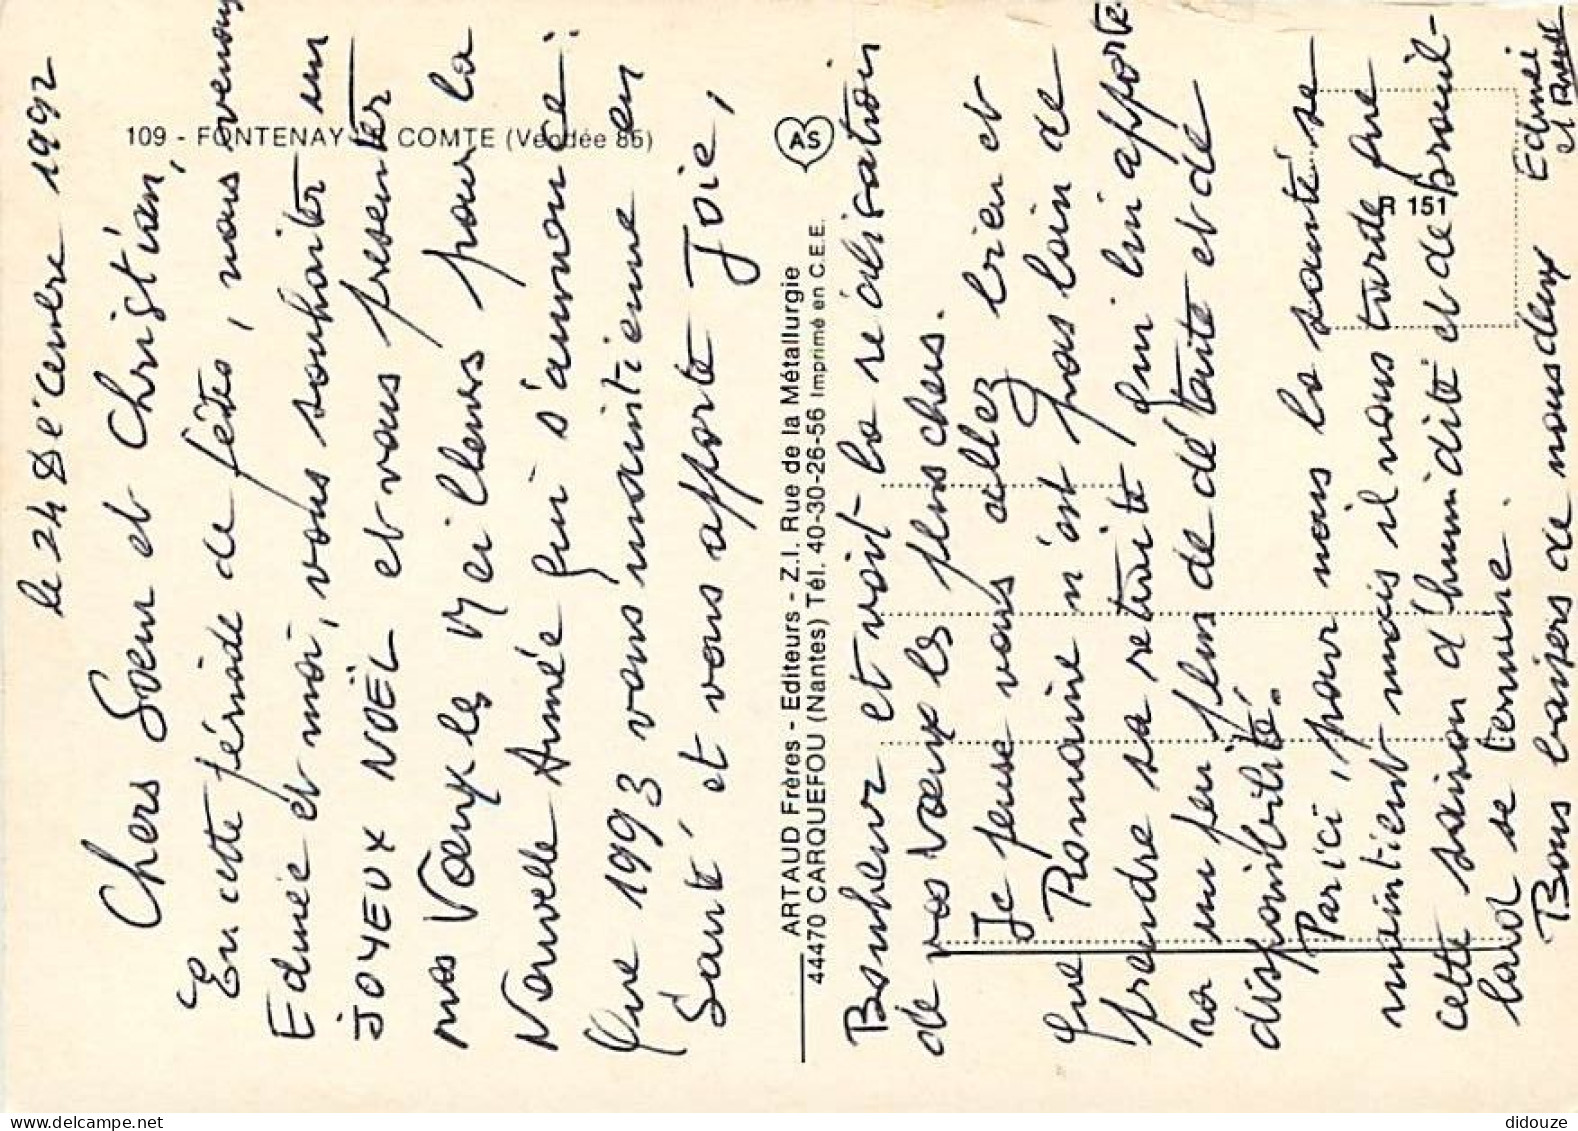 109 - FONTENAY COMTE (Vendée 85)
le 24 Décembre 1992
Chers Soeur et Christian,
En cette période de fêtes, nous venons
Edmée et moi, vous souhaiter un
JOYEUX NOËL et vous presenter
nos Vœux les Meilleurs pour la
Nouvelle Année qui s'annonce :
Que 1993 vous maintienne en
Santé et vous apporte Joie,
ARTAUD Frères - Editeurs - Z.I. Rue de la Métallurgie
44470 CARQUEFOU (Nantes) Tél. 40-30-26-56 Imprimé en C.E.E.
AS
R 151
Bonheur et voit la réalisation
de vos Vœux les plus chers.
Je pense vous allez bien et
que Romaine n'est pas loin de
prendre sa retraite, qui lui apporte-
ra un peu plus de détente et de
disponibilité.
Par ici, pour nous la santé se
maintient mais il nous tarde que
cette saison d'humidité et de brouil-
lard se termine.
Bons baisers de nous deux
Edmée
et
didouze